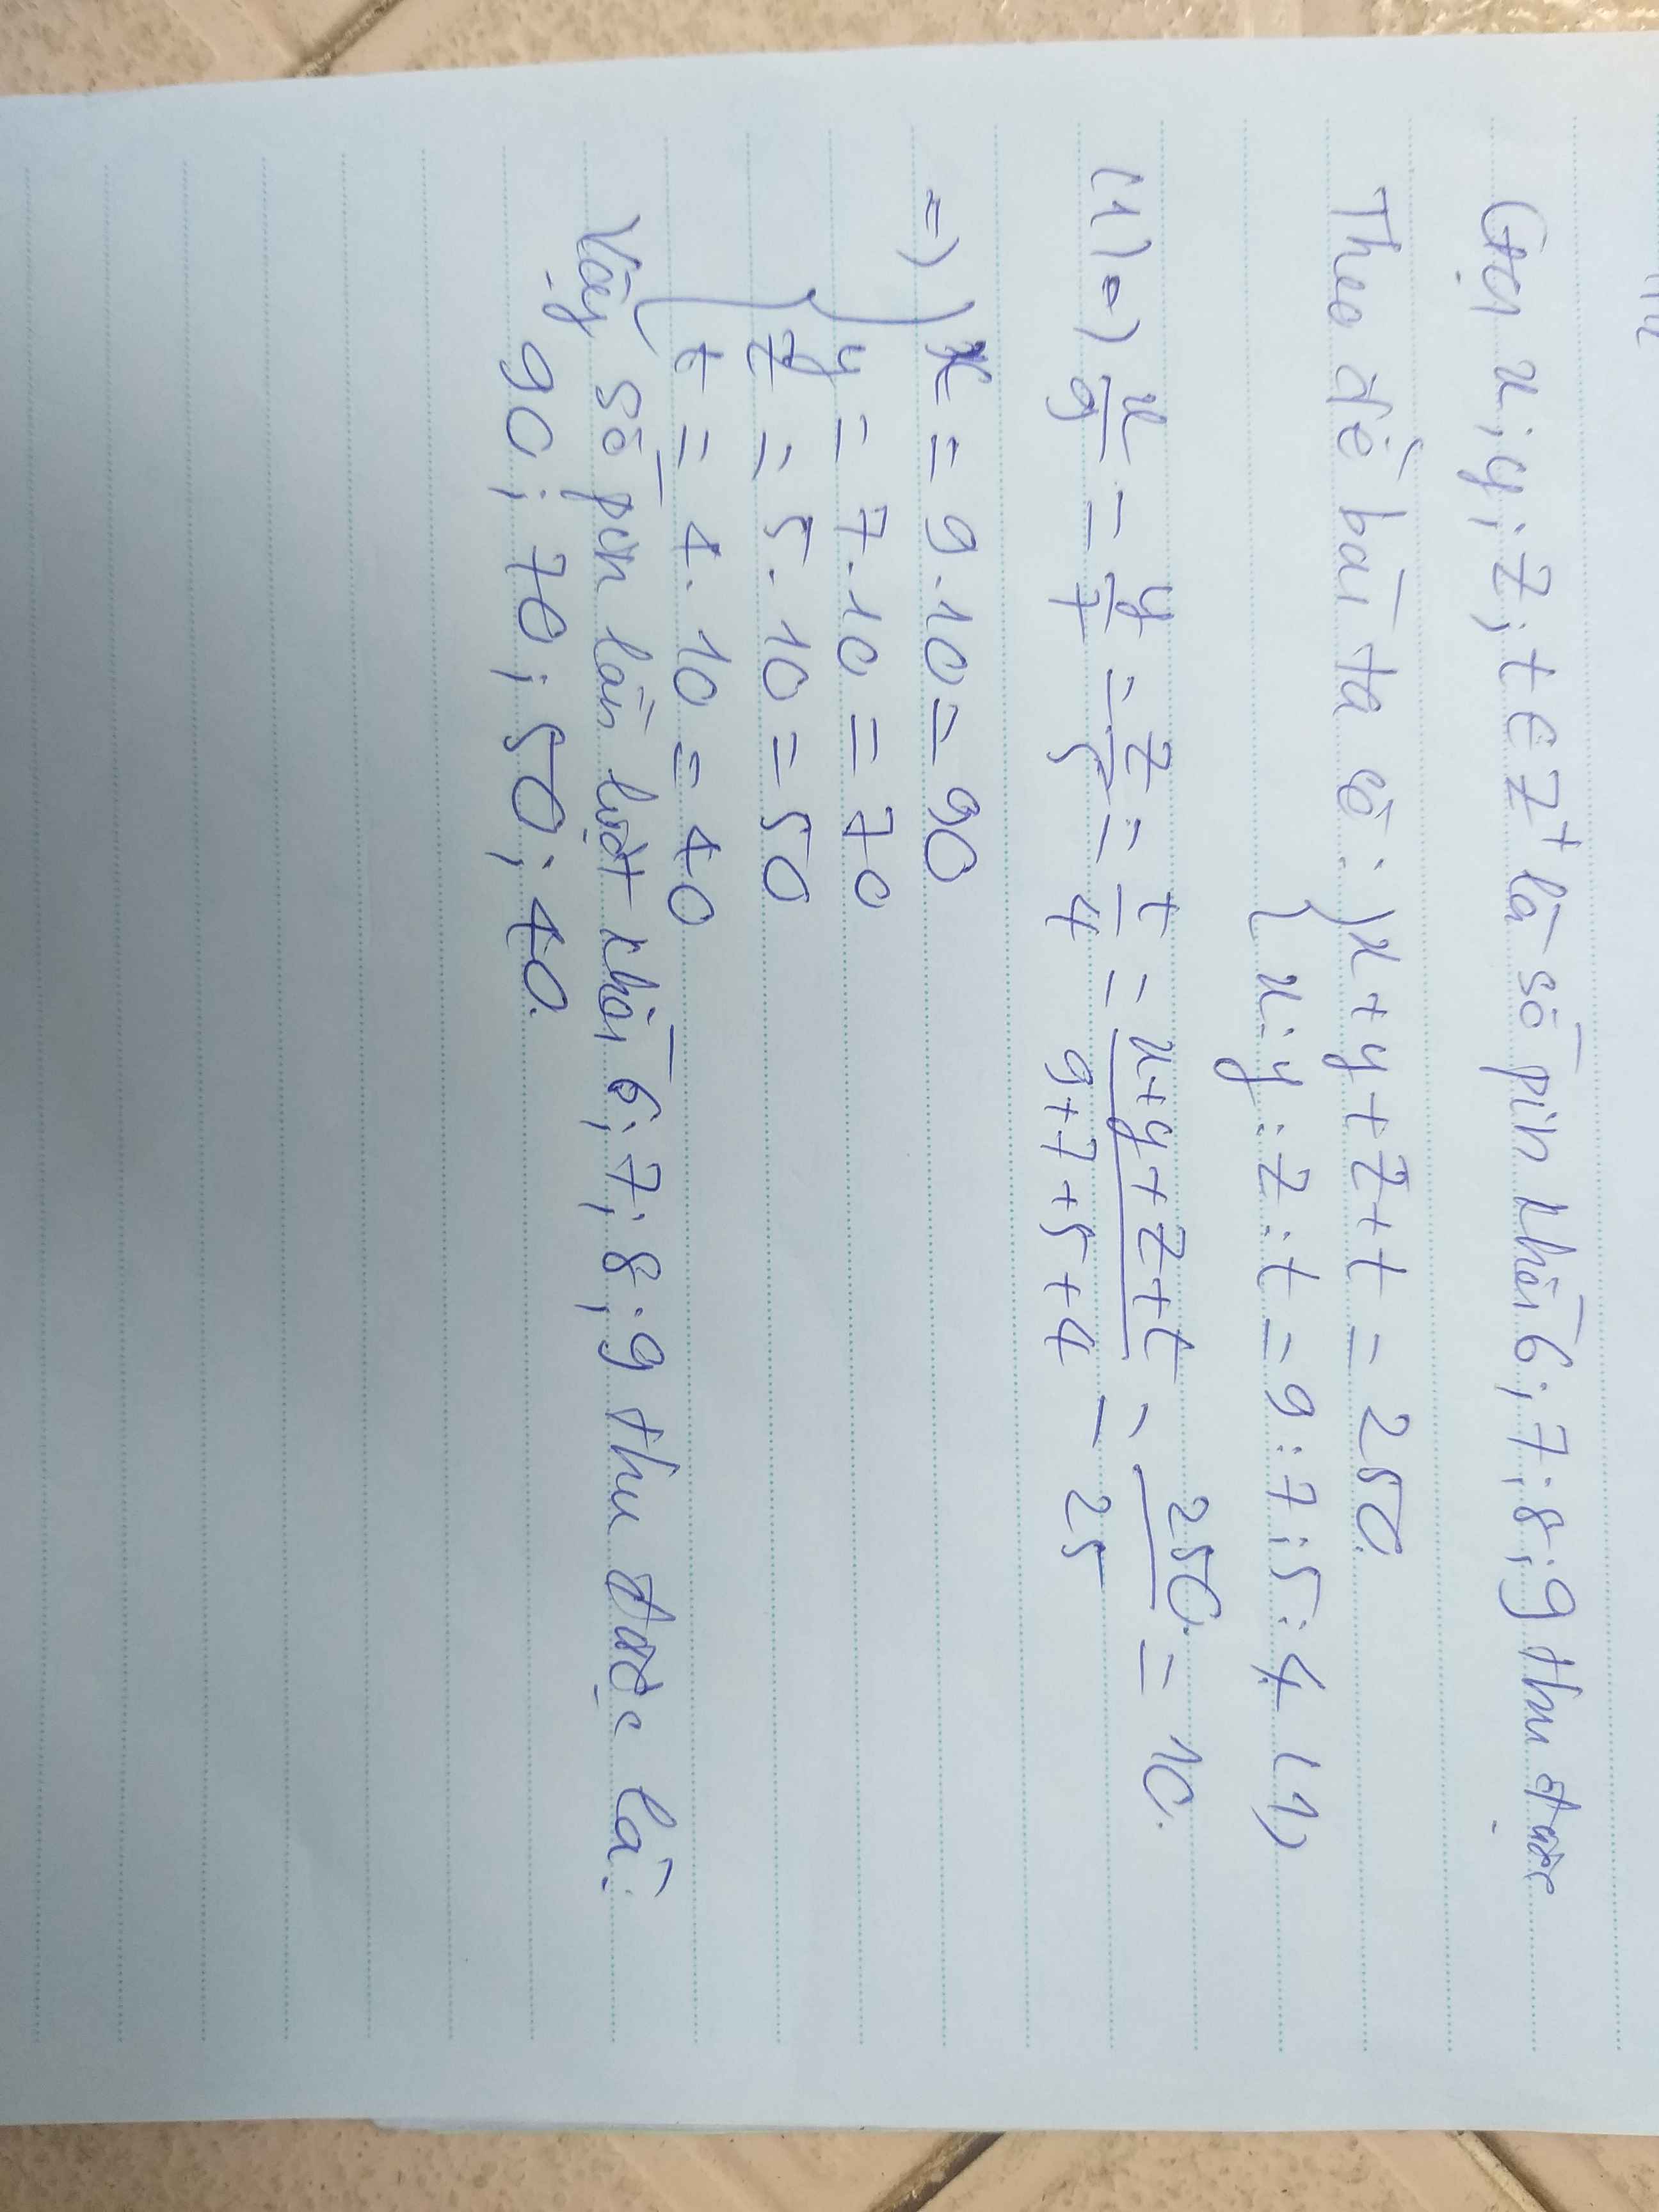 Gọi x; y; z; t ∈ Z⁺ là số pin khối 6; 7; 8; 9 thu được
Theo đề bài ta có: { x + y + z + t = 250.
{ x : y : z : t = 9 : 7 : 5 : 4 (1)
(1) => x/9 = y/7 = z/5 = t/4 = x+y+z+t/9+7+5+4 = 250/25 = 10.
=> { x = 9 . 10 = 90
y = 7 . 10 = 70
z = 5 . 10 = 50
t = 4 . 10 = 40
Vậy số pin lần lượt khối 6; 7; 8; 9 thu được là:
90; 70; 50; 40.